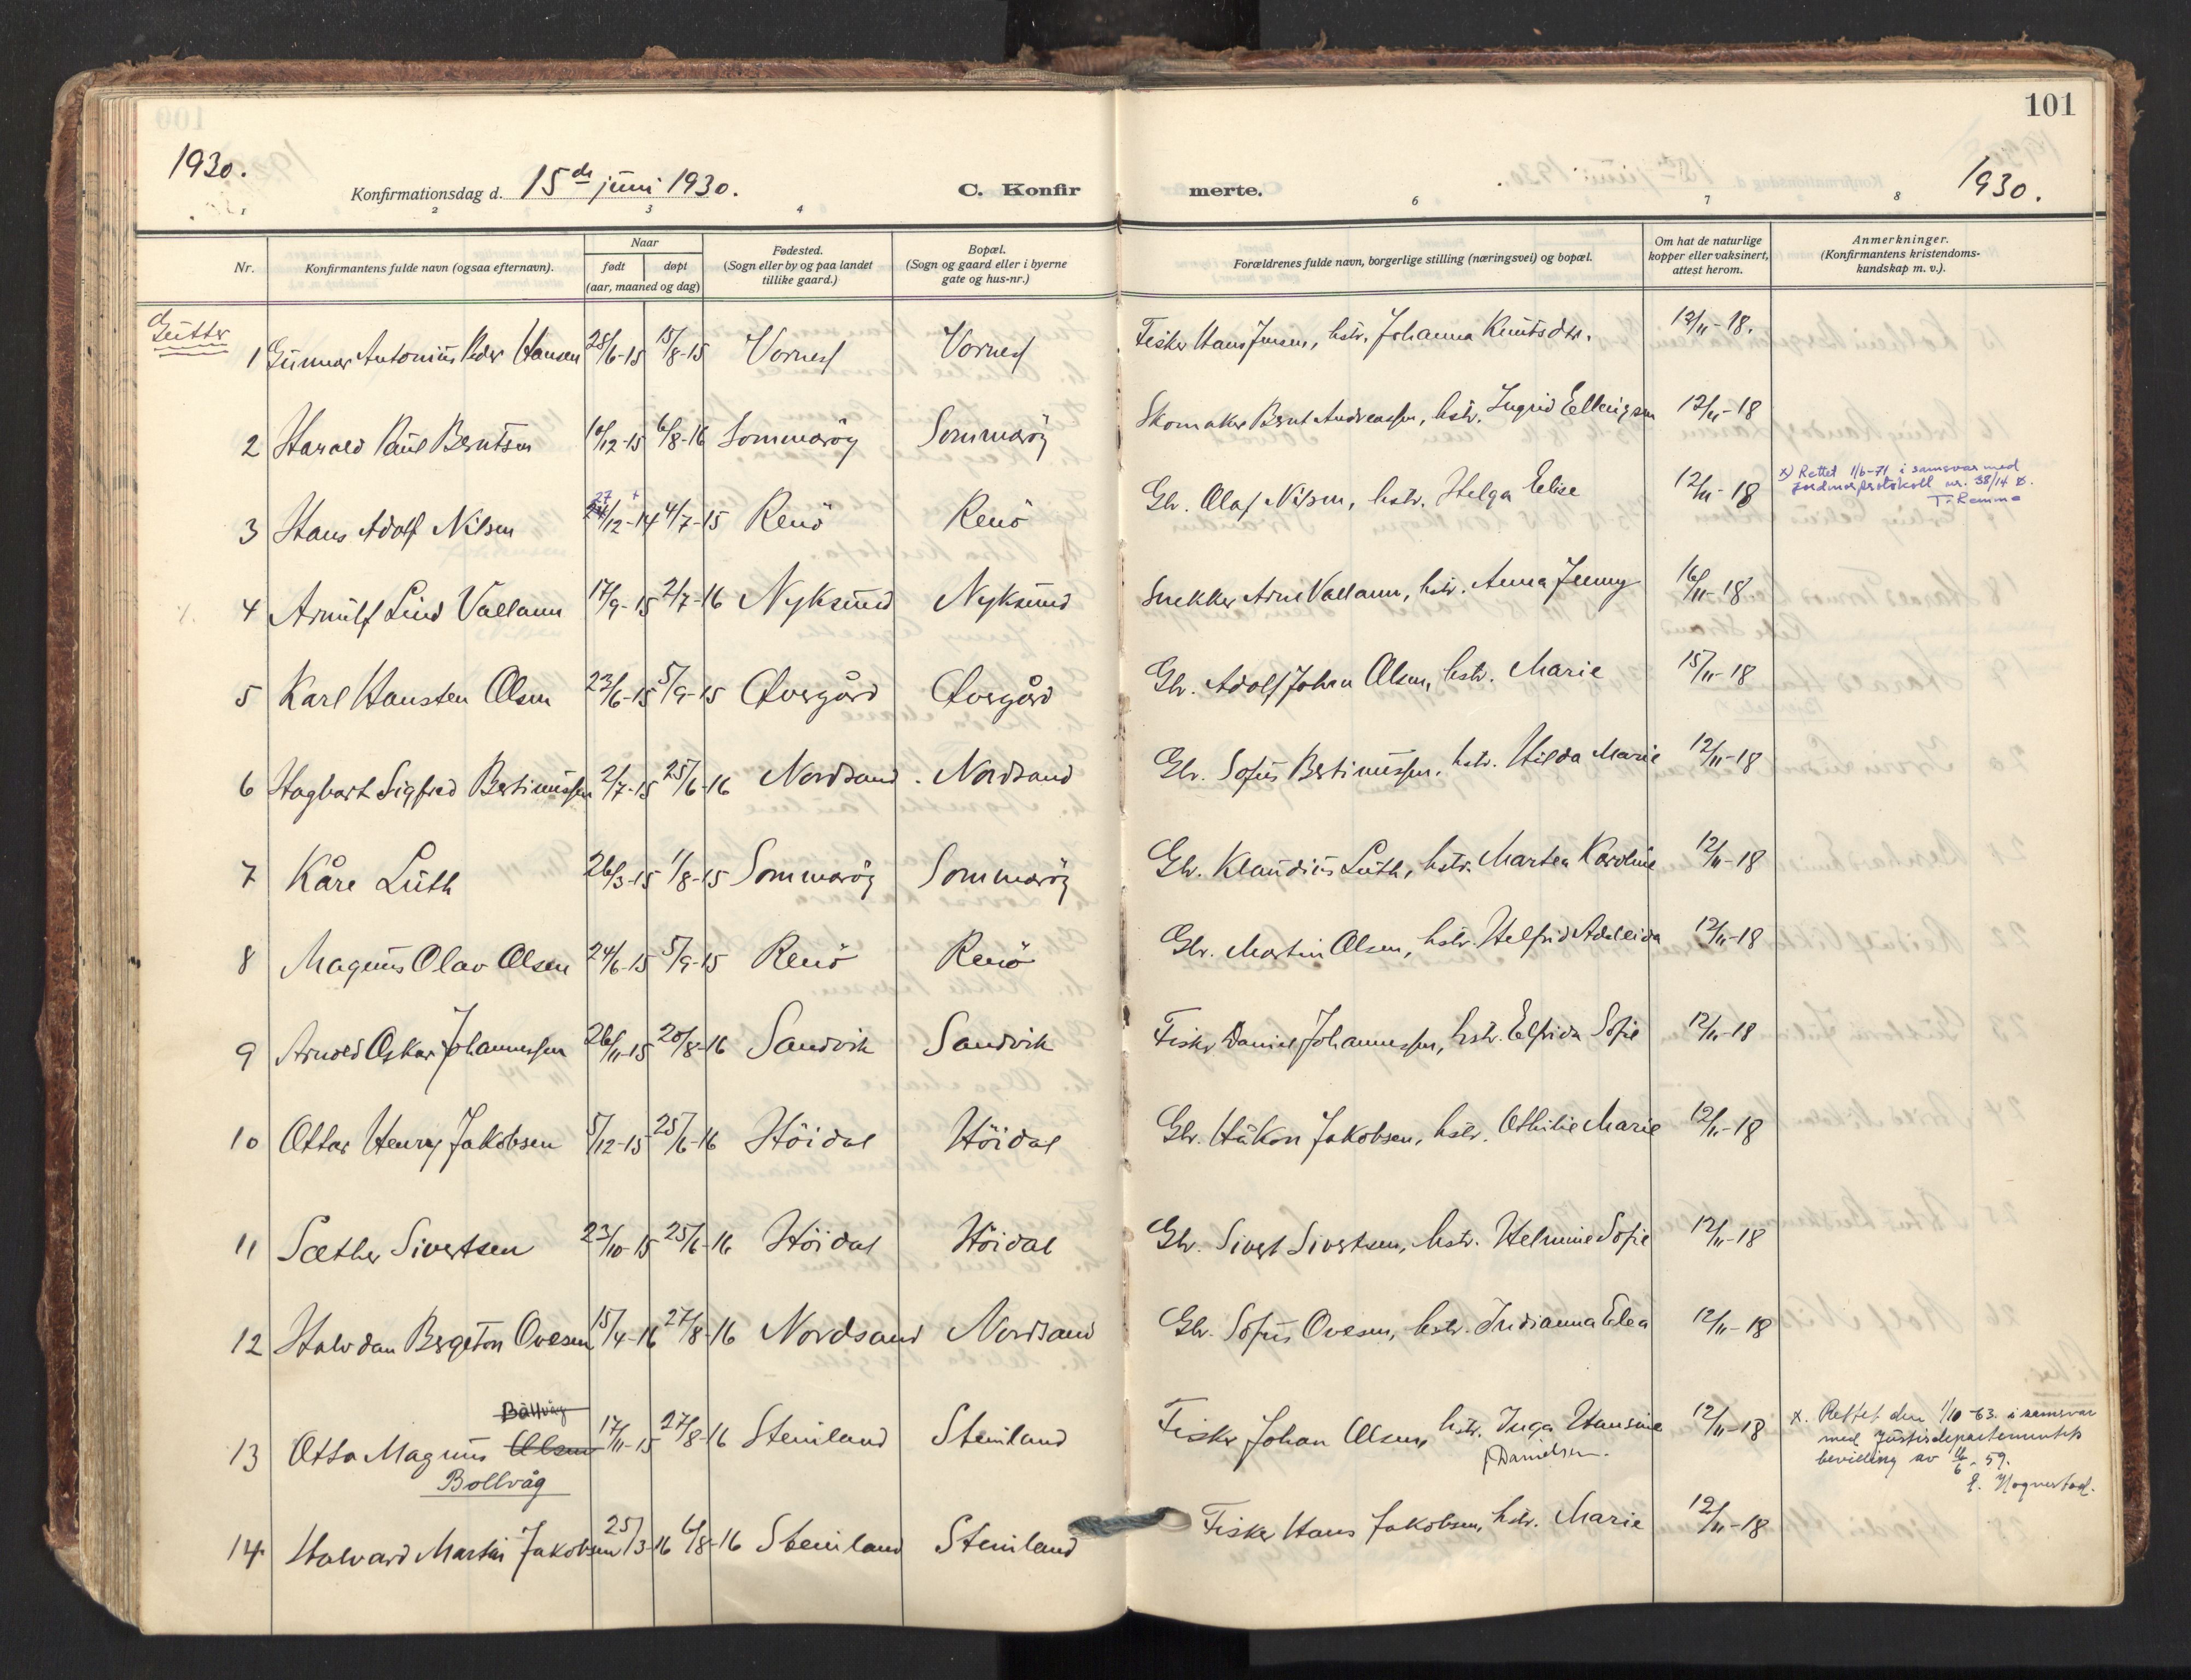 101
1930.
Konfirmationsdag d. 15de juni 1930.
C. Konfir
merte.
1930.
1 2 3 4 6 7 8
Nr.
Konfirmantens fulde navn (ogsaa efternavn).
Naar
født døpt
(aar, maaned og dag)
Fødested.
(Sogn eller by og paa landet
tillike gaard.)
Bopæl.
(Sogn og gaard eller i byerne
gate og hus-nr.)
Forældrenes fulde navn, borgerlige stilling (næringsvei) og bopæl.
Om hat de naturlige
kopper eller vaksinert,
attest herom.
Anmerkninger.
(Konfirmantens kristendoms-
kundskap m. v.).
Gutter
1 Gunnar Antonius Peder Hansen 28/6-15 15/8-15 Vornes Vornes Fisker Hans Jensen, hstr. Johanna Knutsdtr. 12/11-18.
2 Harald Paul Berntsen /12-15 6/8-16 Sommarøy Sommarøy Skomaker Bernt Andreassen, hstr. Ingrid Ellingsen 12/11-18
3 Hans Adolf Nilsen 27/12-14 4/7-15 Renö Renö Gbr. Olaf Nilsen, hstr. Helga Elise 12/11-18
x) Rettet 1/6-71 i samsvar med
nr. 38/14
4 Arnulf Lind Vallann 17/9-15 2/7-16 Nyksund Nyksund Snekker Arne Vallann, hstr. Anna Jenny 16/11-18
5 Karl Hansten Olsen 23/6-15 5/9-15 Overgård Overgård Gbr. Adolf Johan Olsen, hstr. Marie 15/11-18
6 Hagbart Sigfred Bertinussen 2/7-15 25/6-16 Nordsand Nordsand Gbr. Sofus Bertinussen, hstr. Hilda Marie 12/11-18
7 Kåre Luth 26/3-15 1/8-15 Sommarøy Sommarøy Gbr. Klaudius Luth, hstr. Martea Karoline 12/11-18
8 Magnus Olav Olsen 24/6-15 5/9-15 Renö Renö Gbr. Martin Olsen, hstr. Helfrid Adeleida 12/11-18
9 Arnold Oskar Johannessen 26/11-15 20/8-16 Sandvik Sandvik Fisker Daniel Johannessen, hstr. Elfrida Sofie 12/11-18
10 Ottar Henry Jakobsen 5/12-15 25/6-16 Höidal Höidal Gbr. Håkon Jakobsen, hstr. Othilie Marie 12/11-18
11 Sæther Sivertsen 23/10-15 25/6-16 Höidal Höidal Gbr. Sivert Sivertsen, hstr. Helmine Sofie 12/11-18
12 Halvdan Bergeton Ovesen 15/4-16 27/8-16 Nordsand Nordsand Gbr. Sofus Ovesen, hstr. Indianna Elea 12/11-18
Bollvåg
13 Otto Magnus Olsen 17/11-15 27/8-16 Steinland Steinland Fisker Johan Olsen, hstr. Inga Hansine 12/11-18
Bollvåg
f. Danielsen.
x. Rettet den 1/10-63. i samsvar
med Justisdepartementets
bevilling av /6-59.
14 Halvard Martin Jakobsen 25/3-16 6/8-16 Steinland Steinland Fisker Hans Jakobsen, hstr. Marie 12/11-18